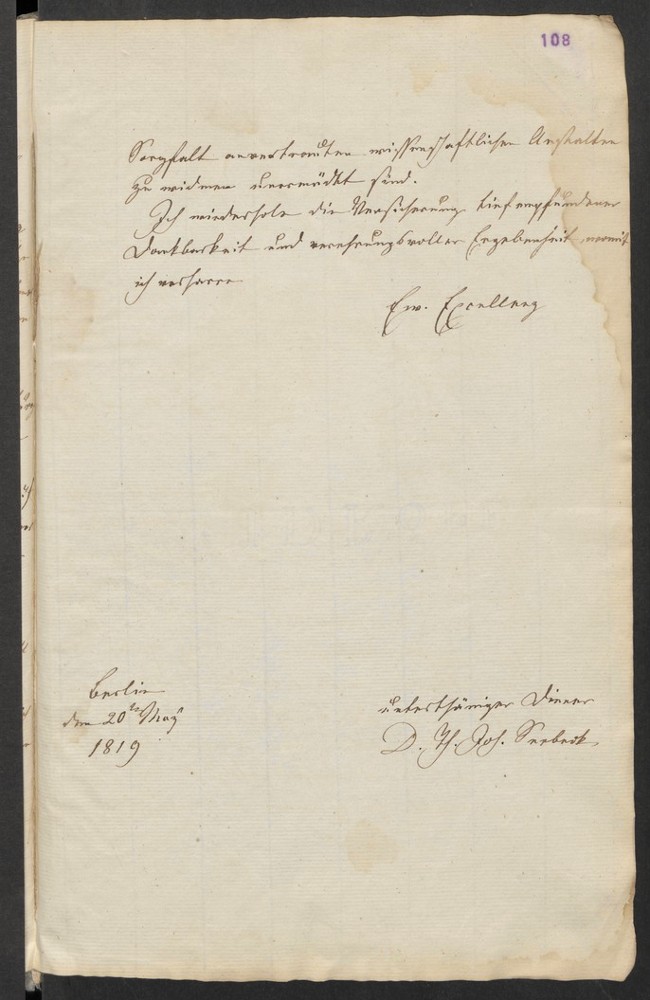 108
Sorgfalt anvertrauten wissenschaftlichen Anstalten
zu widmen unermüdet sind.
Ich wiederhole die Versicherung tiefempfundener
Dankbarkeit und verehrungsvoller Ergebenheit womit
ich verharre
Ew. Excellenz
Berlin
den 20ten May
1819
unterthäniger Diener
D. Th. Joh. Seebeck